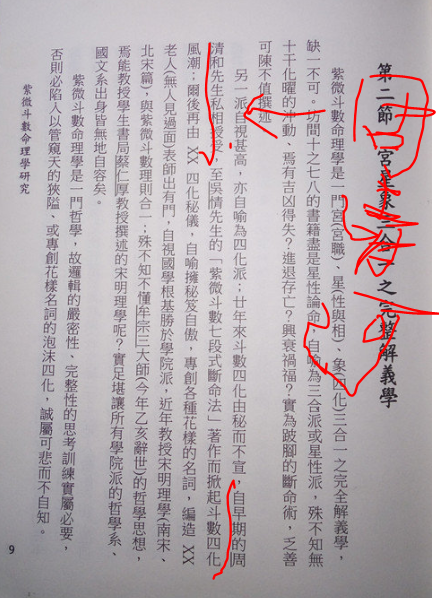 第二節 宮星象三合一之完整解義學
紫微斗數命理學是一門宮(宮職)、星性與相)、象(四化)三合一之完全解義學,
缺一不可。坊間十之七八的書籍盡是星性論命,自喻為三合派或星性派,殊不知無
十干化曜的沖動、焉有吉凶得失?進退存亡?興衰禍福?實為跛腳的斷命術,乏善
可陳不值撰述
另一派自視甚高,亦自喻為四化派;廿年來斗數四化由秘而不宣,自早期的周
清和先生私相授受,至吳情先生的「紫微斗數七段式斷命法」著作而掀起斗數四化
風潮;爾後再由 XX 四化秘儀,自喻擁秘笈自傲,專創各種花樣的名詞,編造 XX
老人(無人見過面)表師出有門,自視國學根基勝於學院派,近年教授宋明理學(南宋、
北宋篇),與紫微斗數理則合一;殊不知不懂牟宗三大師(今年乙亥辭世)的哲學思想,
焉能教授學生書局蔡仁厚教授撰述的宋明理學呢?實足堪讓所有學院派的哲學系、
國文系出身皆無地自容矣。
紫微斗數命理學是一門哲學,故邏輯的嚴密性、完整性的思考訓練實屬必要,
否則必陷入以管窺天的狹隘、或專創花樣名詞的泡沫四化,誠屬可悲而不自知。
紫微斗數命理學研究
9